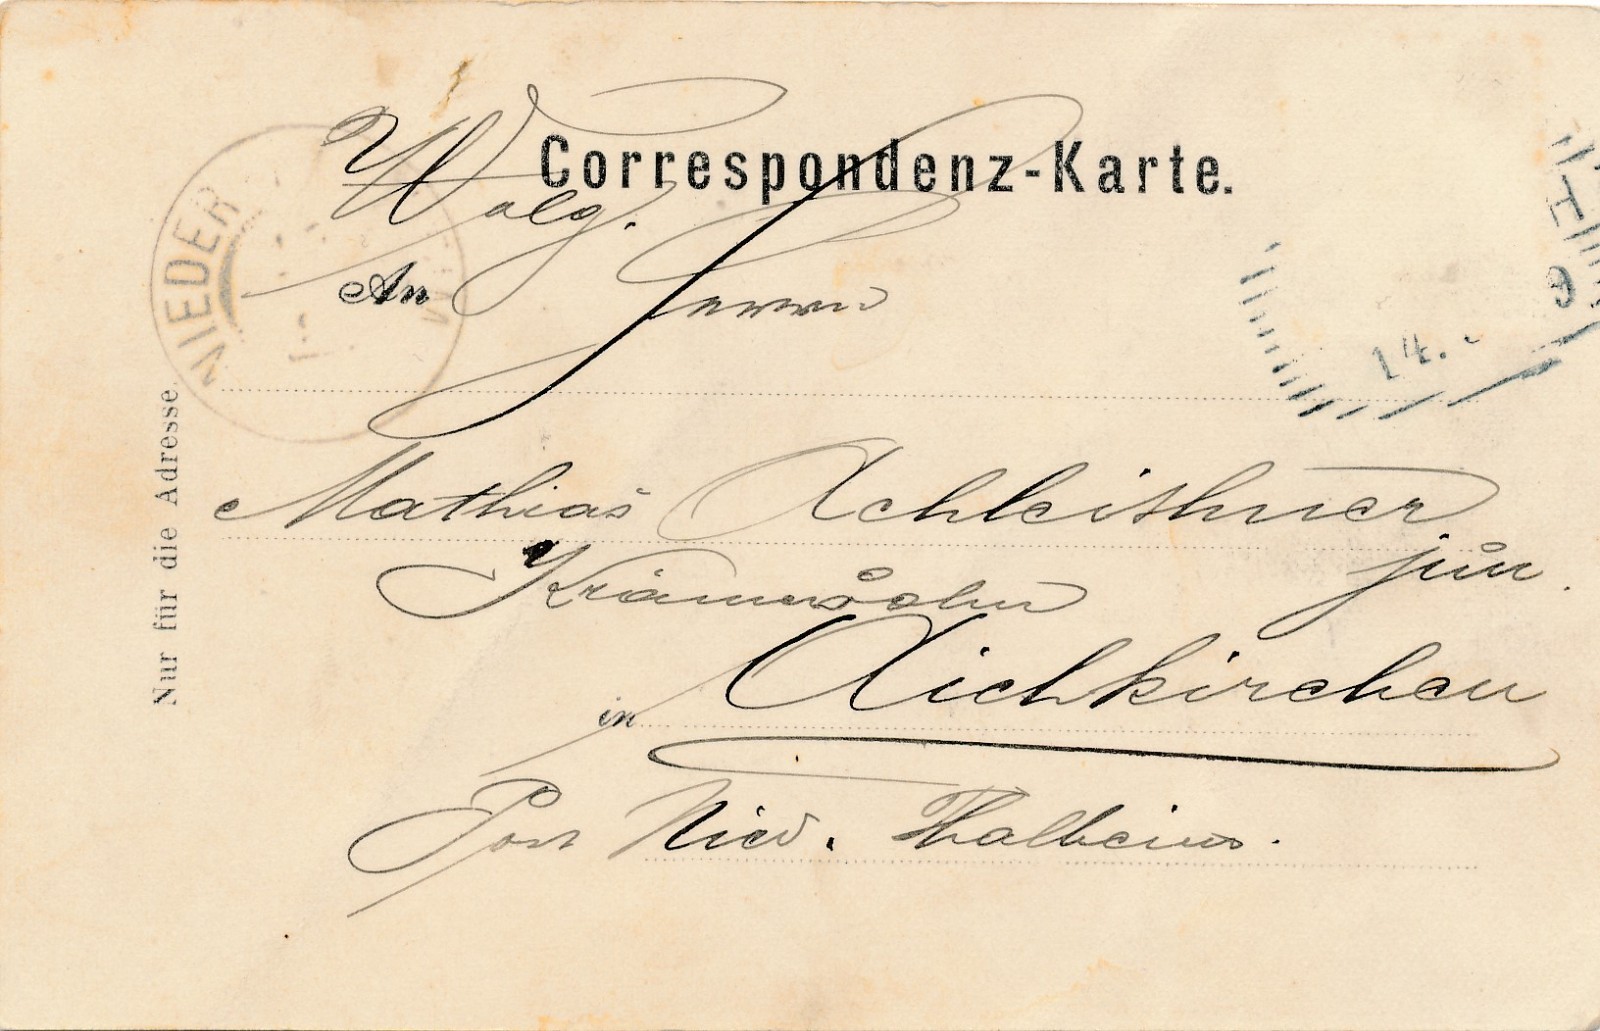 Correspondenz-Karte.
Wolg.
An Herrn
Mathias Achleithner
jun.
Krämerssohn
in Aichkirchen
Post Nied. Thalheim.
Nur für die Adresse
NIEDER
14.
9